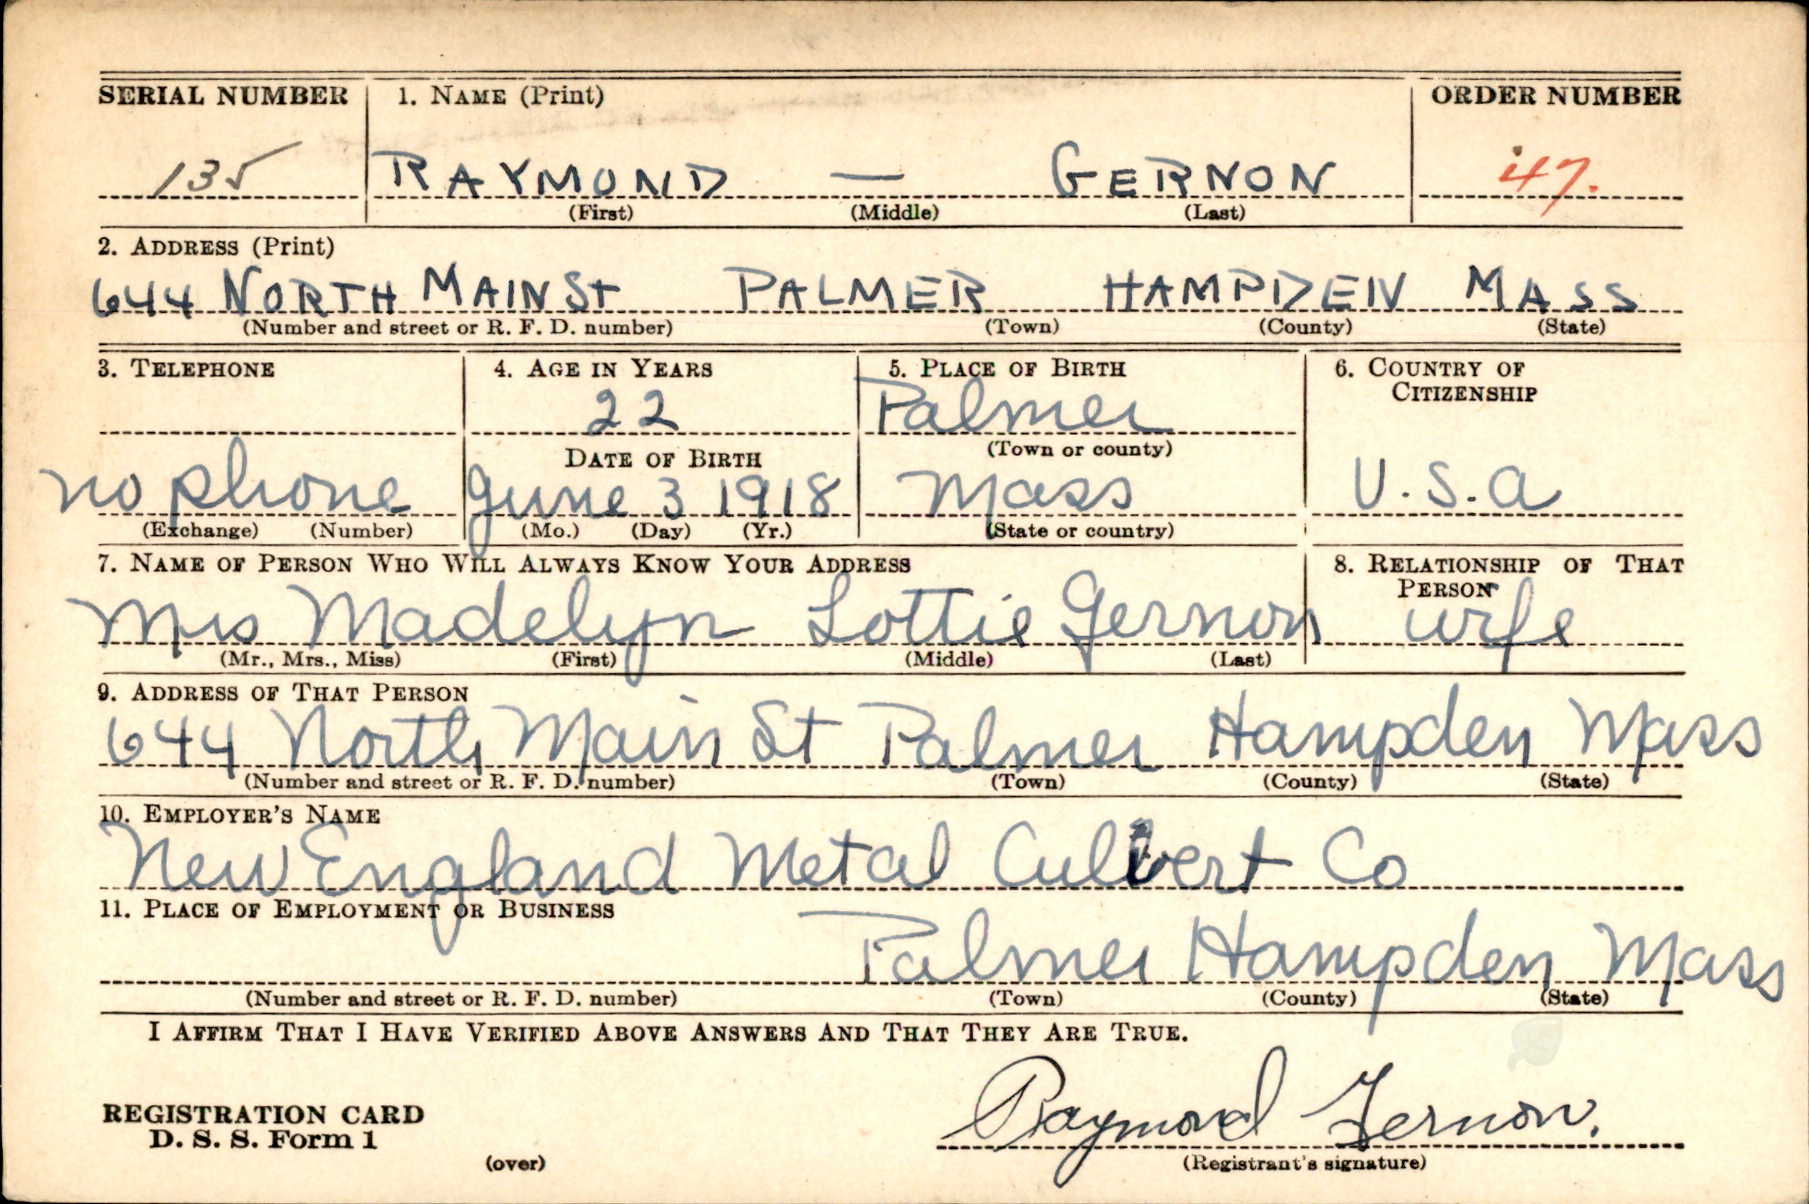 SERIAL NUMBER 1. NAME (Print) ORDER NUMBER
135 RAYMOND — GERNON 47.
(First) (Middle) (Last)
2. ADDRESS (Print)
644 NORTH MAIN St PALMER HAMPDEN MASS
(Number and street or R. F. D. number) (Town) (County) (State)
3. TELEPHONE 4. AGE IN YEARS 5. PLACE OF BIRTH 6. COUNTRY OF
CITIZENSHIP
22 Palmer
DATE OF BIRTH (Town or county)
no phone June 3 1918 Mass U.S.A
(Exchange) (Number) (Mo.) (Day) (Yr.) (State or country)
7. NAME OF PERSON WHO WILL ALWAYS KNOW YOUR ADDRESS 8. RELATIONSHIP OF THAT
PERSON
Mrs Madelyn Lottie Gernon wife
(Mr., Mrs., Miss) (First) (Middle) (Last)
9. ADDRESS OF THAT PERSON
644 North Main St Palmer Hampden Mass
(Number and street or R. F. D. number) (Town) (County) (State)
10. EMPLOYER'S NAME
New England Metal Culvert Co
11. PLACE OF EMPLOYMENT OR BUSINESS
Palmer Hampden Mass
(Number and street or R. F. D. number) (Town) (County) (State)
I AFFIRM THAT I HAVE VERIFIED ABOVE ANSWERS AND THAT THEY ARE TRUE.
REGISTRATION CARD
D. S. S. Form 1
Raymond Gernon.
(over) (Registrant's signature)